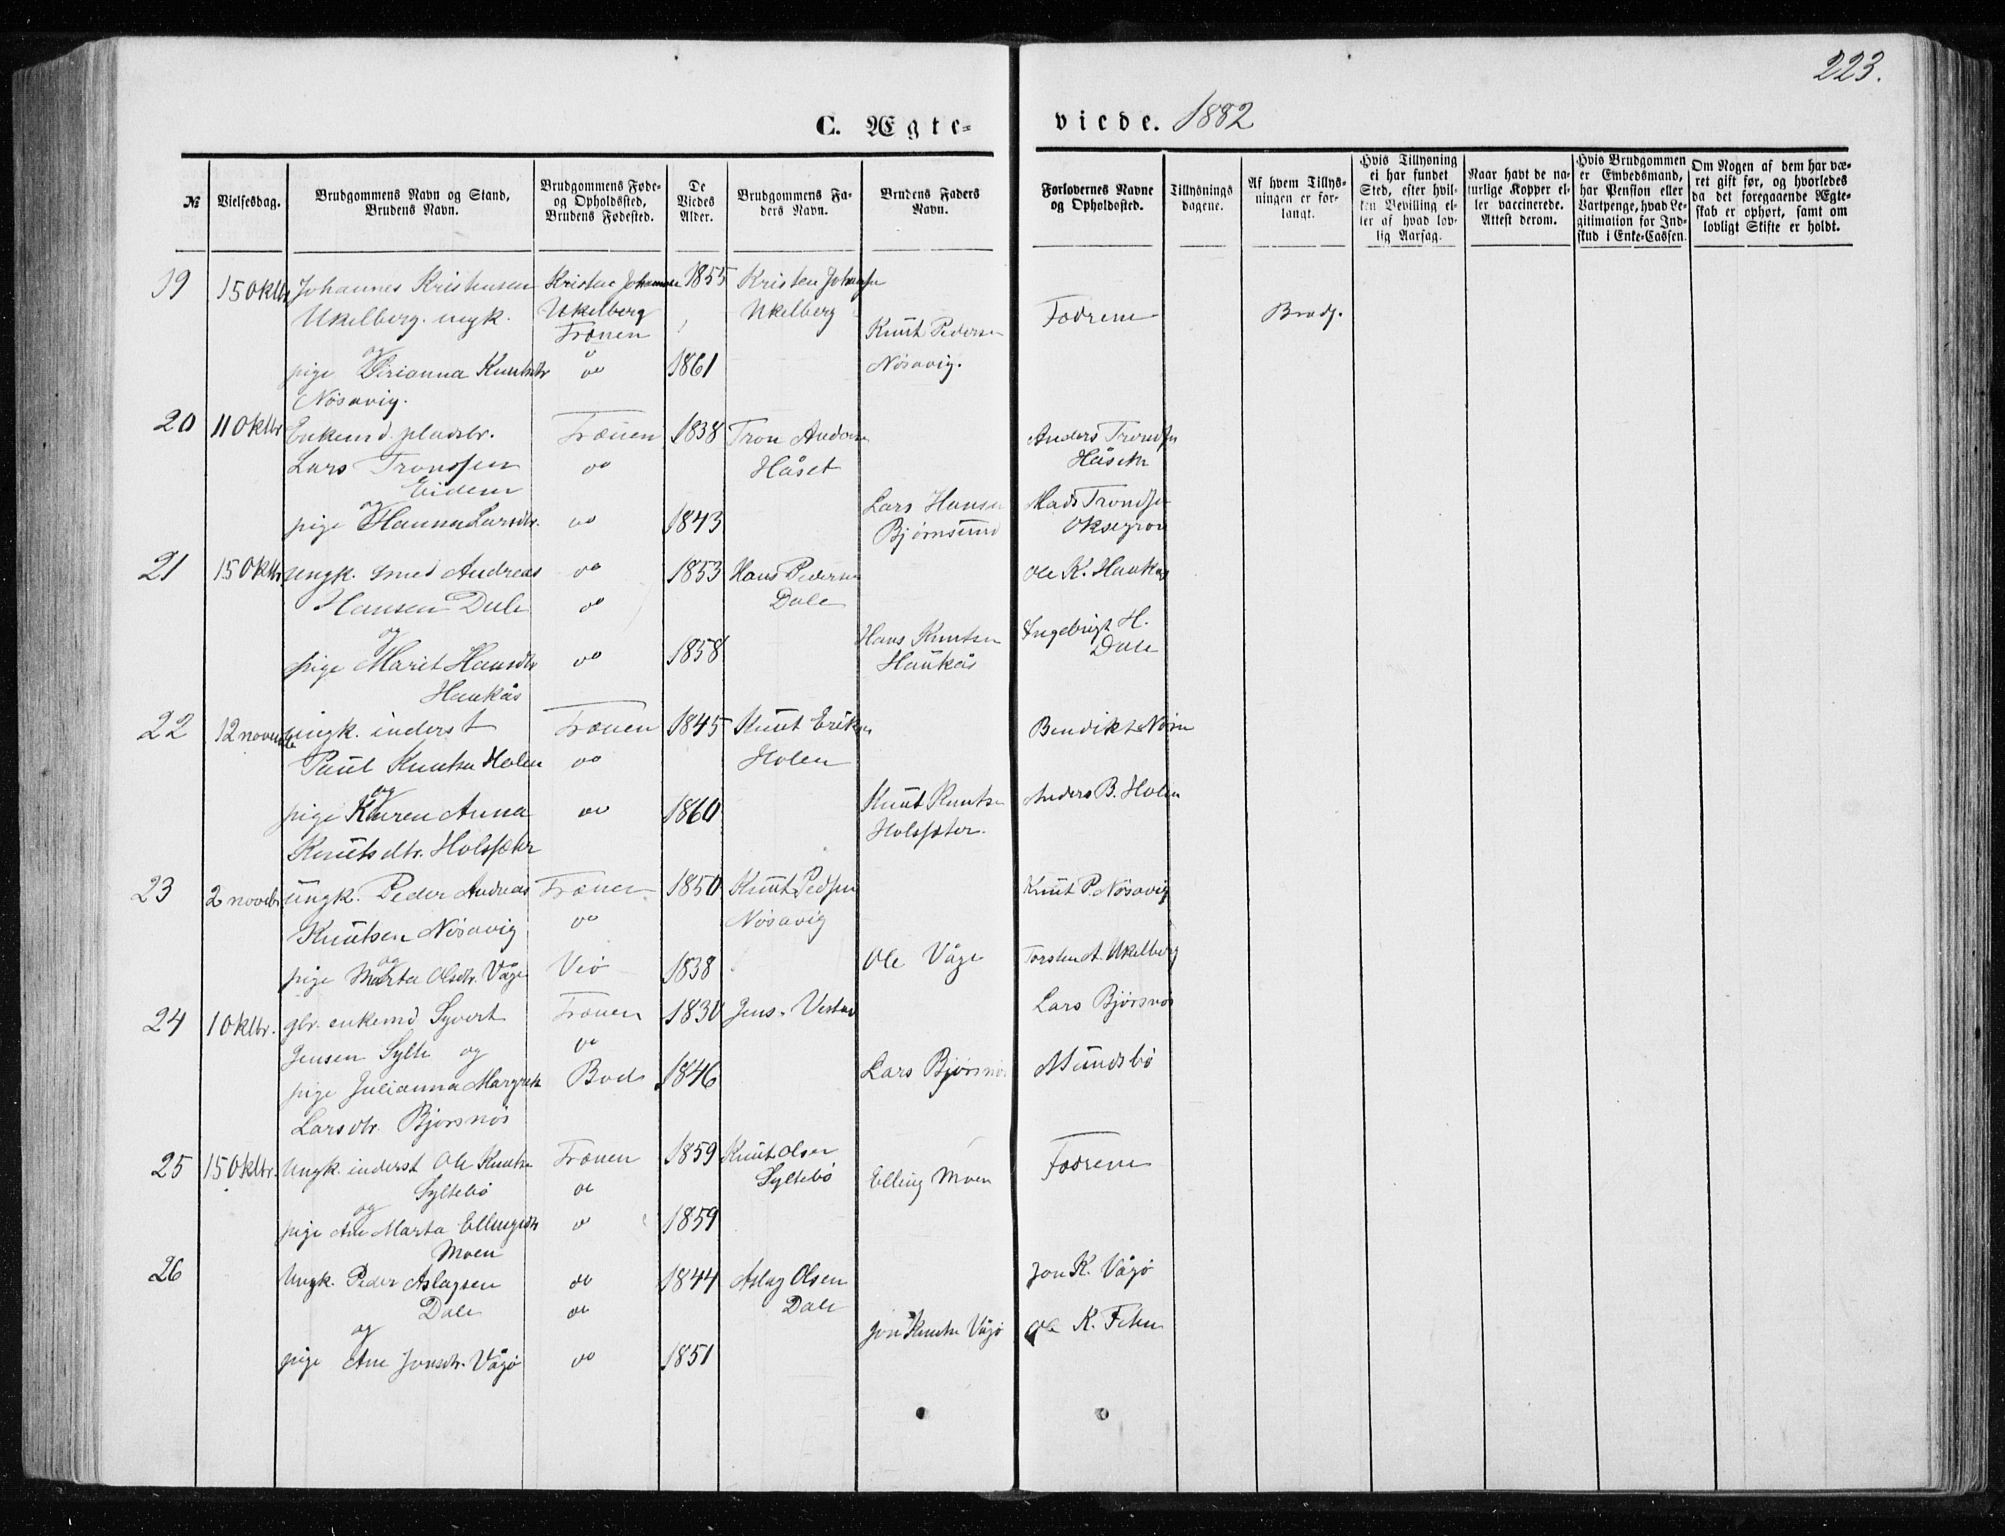 223.
C. Ægte-
viede. 1882
№
Vielsesdag.
Brudgommens Navn og Stand,
Brudens Navn.
Brudgommens Føde-
og Opholdssted,
Brudens Fødested.
De
Viedes
Alder.
Brudgommens Fa-
ders Navn.
Brudens Faders
Navn.
Forlovernes Navne
og Opholdssted.
Tillysnings
dagene.
Af hvem Tillys-
ningen er for-
langt.
Hvis Tillysning
ei har fundet
Sted, efter hvil-
ken Bevilling el-
ler af hvad lov-
lig Aarsag.
Naar havt de na-
turlige Kopper el-
ler vaccinerede.
Attest derom.
Hvis Brudgommen
er Embedsmand,
har Pension eller
Vartpenge, hvad Le-
gitimation for Ind-
skud i Enke-Cassen.
Om Nogen af dem har væ-
ret gift før, og hvorledes
da det foregaaende Ægte-
skab er ophørt, samt om
lovligt Skifte er holdt.
19 15 Oktbr Johannes Kristensen Kristen Johansen 1855 Kristen Johansen
Ukelberg. ungk. Ukelberg Ukelberg Fædrene Brudg.
Frænen Knut Pedersen
og
pige Pirianna Knutsdtr do 1861 Nøsavig.
Nøsavig.
20 11 Oktbr Enkemd. pladsbr. Frænen 1838 Tron Andersen Anders Trondsen
Lars Tronssen do Håset Håseth
Eidem
og Lars Hansen Mads Trondsen
pige Hanna Larsdtr. do 1843 Bjørnsund
21 15 Oktbr ungk. smed Andreas do 1853 Hans Pedersen Ole K. Haukås
Hansen Dale do Dale
og Hans Knutsen Ingebrigt H.
pige Marit Hansdtr do 1858 Haukås Dale
Haukås
22 12 novembr ungk. inderst Frænen 1845 Knut Eriksen Bendikt Nørn
Paul Knutsen Holen do Holen
og Knut Knutsen Anders B. Holen
pige Karen Anna do 1860 Holssæter.
Knutsdtr. Holssæter
23 2 novebr ungk. Peder Andreas Frænen 1850 Knut Pedsen Knut P. Nøsavig
Knutsen Nøsavig do Nøsavig
og
pige Marta Olsdtr. Våge Veø 1838 Ole Våge Torsten A. Ukelberg
24 1 Oktbr. gbr. enkemd Syvert Frænen 1830 Jens Vestad Lars Bjørsnøs
Jensen Sylte og do
pige Julianna Margrete Bod 1846 Lars Bjørsnøs
Larsdtr. Bjørsnøs
25 15 Oktbr. Ungk. inderst Ole Knutsen Frænen 1859 Knut Olsen Fædrene
Syltebø do Syltebø Elling Moen
og
pige Ane Marta Ellingsdtr do 1859
Moen
26 Ungk. Peder Aslagsen do 1844 Aslag Olsen Jon K. Vågø
Dale do Dale
og Jon Knutsen Vågø Ole K.
pige Ane Jonsdtr. Vågø do 1851